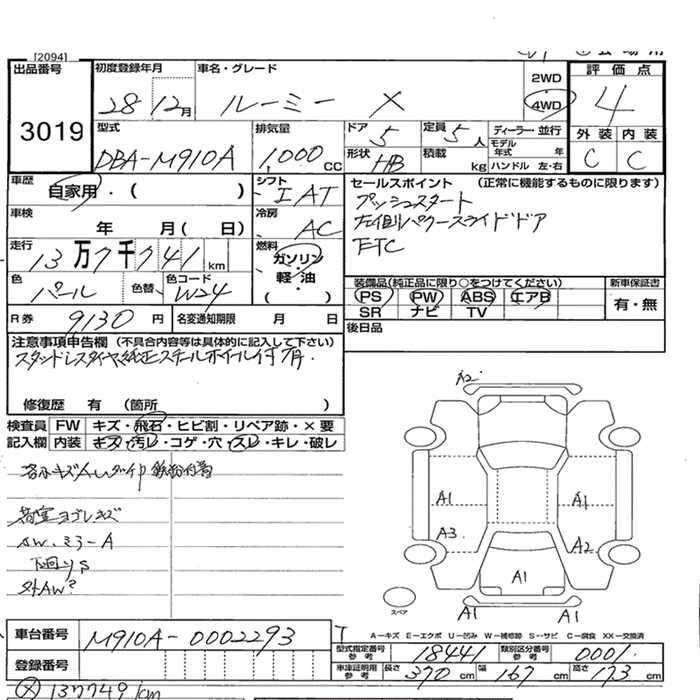 [2094]
出品番号 初度登録年月 車名・グレード 2WD 評価点
3019 28 12月 ルーミー X 4WD 4
型式 排気量 ドア 定員 ディーラー・並行 外装 内装
DBA-M910A 1,000cc 5 5人 モデル年式 年 C C
形状 HB 積載 kg ハンドル 左・右
車歴 自家用・( ) シフト IAT セールスポイント (正常に機能するものに限ります)
車検 年 月( 日) 冷房 AC プッシュスタート
左側パワースライドドア
走行 13万7千741km 燃料 ガソリン・軽・油 ( ) ETC
色 パール 色替 色コード W24 装備品(純正品に限り○をつけてください) 新車保証書
PS PW ABS エアB 有・無
SR ナビ TV
R券 9130円 名変通知期限 月 日 後日品
注意事項申告欄 (不具合内容等は具体的に記入して下さい)
スタッドレスタイヤ純正スチールホイール付
修復歴 有 (箇所 )
検査員記入欄 FW キズ・飛石・ヒビ割・リペア跡・×要
内装 キズ・汚レ・コゲ・穴・スレ・キレ・破レ
A2
A1 A1
A3 A2
A1
A1 A1
AW、ミラーA
下回りS
外AW?
スペア
A－キズ E－エクボ U－凹み W－補修跡 S－サビ C－腐食 XX－交換済
車台番号 M910A-0002293
型式指定番号参考 18441 類別区分番号参考 0001
登録番号 車庫証明用参考 長さ 370cm 幅 167cm 高さ 173cm
Ⓧ 137749km